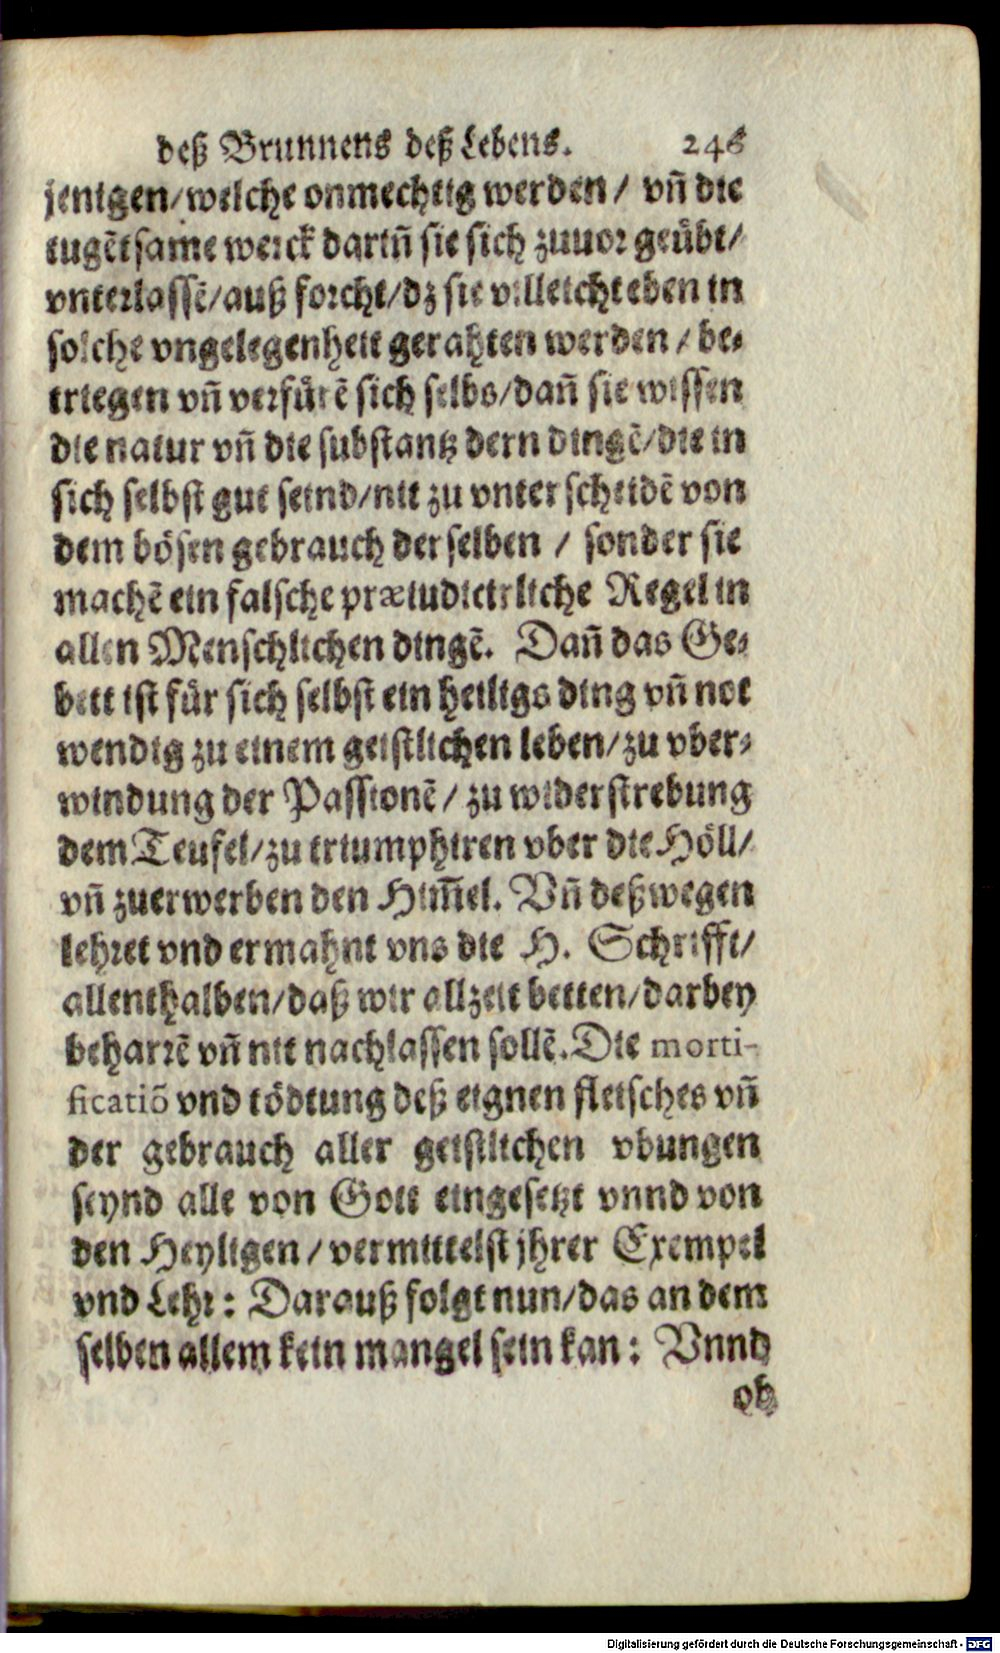 deß Brunnens deß Lebens. 246
jenigen/welche onmechtig werden/ vñ die
tugẽtsame werck dariñ sie sich zuuor geübt/
vnterlassẽ/auß forcht/dz sie villeicht eben in
solche vngelegenheit gerahten werden/be-
triegen vñ verfürẽ sich selbs/dañ sie wissen
die natur vñ die substantz dern dingẽ/die in
sich selbst gut seind/nit zu vnterscheidẽ von
dem bösen gebrauch derselben / sonder sie
machẽ ein falsche præiudicirliche Regel in
allen Menschlichen dingẽ. Dañ das Ge-
bett ist für sich selbst ein heiligs ding vñ not
wendig zu einem geistlichen leben/zu vber-
windung der Passionẽ/ zu widerstrebung
dem Teufel/zu triumphiren vber die Höll/
vñ zuerwerben den Him̃el. Vñ deßwegen
lehret vnd ermahnt vns die H. Schrifft/
allenthalben/daß wir allzeit betten/darbey
beharrẽ vñ nit nachlassen sollẽ. Die morti-
ficatiõ vnd tödtung deß eignen fleisches vñ
der gebrauch aller geistlichen vbungen
seynd alle von Gott eingesetzt vnnd von
den Heyligen/vermittelst jhrer Exempel
vnd Lehr: Darauß folgt nun/das an dem
selben allem kein mangel sein kan: Vnnd
ob
Digitalisierung gefördert durch die Deutsche Forschungsgemeinschaft - DFG